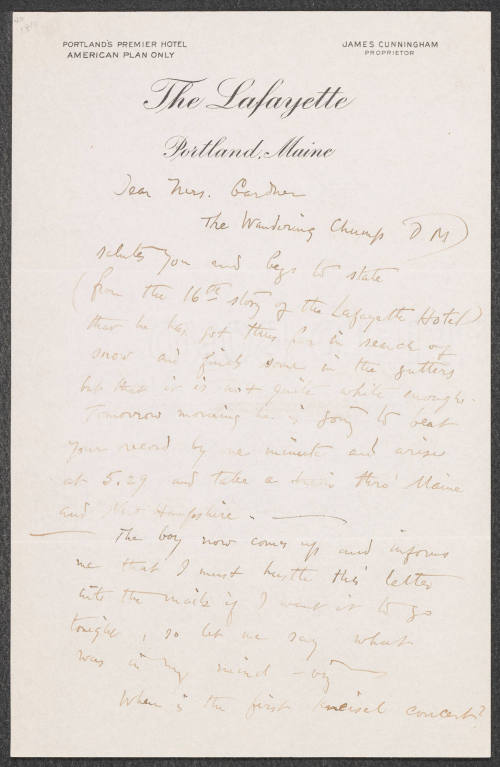 PORTLAND'S PREMIER HOTEL
AMERICAN PLAN ONLY
JAMES CUNNINGHAM
PROPRIETOR
The Lafayette
Portland, Maine
Dear Mrs. Gardner
The Wandering Chump (D M)
salutes you and begs to state
(from the 16th story of the Lafayette Hotel)
that he has got thus far in search of
snow and finds some in the gutters
but that it is not quite white enough.
Tomorrow morning he is going to beat
your record by one minute and arise
at 5.29 and take a train thro' Maine
and New Hampshire. —
— The boy now comes up and informs
me that I must hustle this letter
into the mails if I want it to go
tonight, so let me say what
was in my mind – viz
When is the first Kneisel concert?